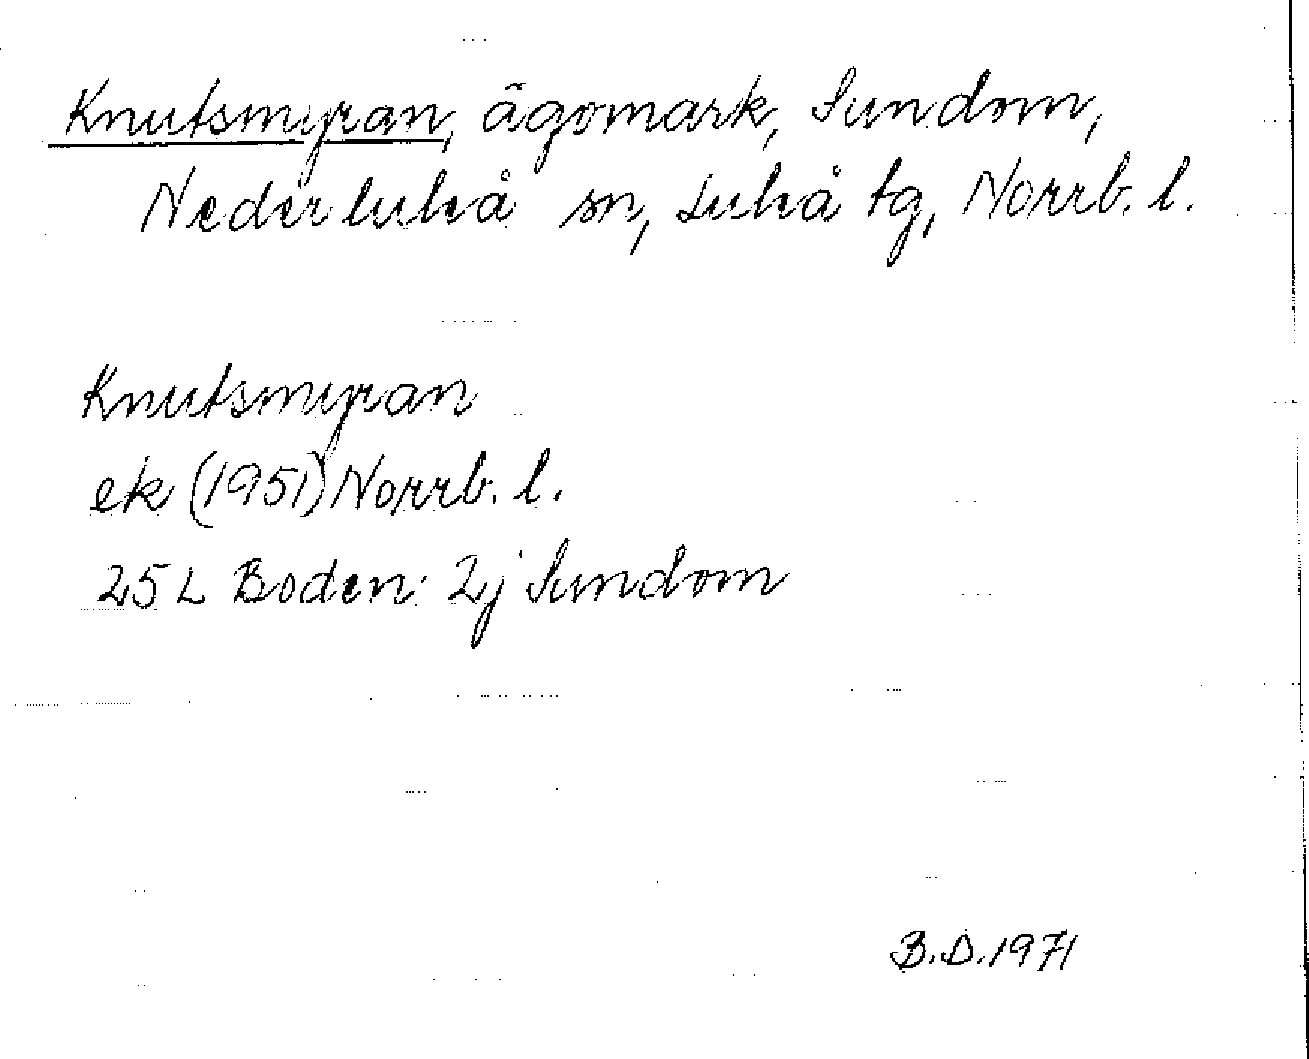 Knutsmyran, ägomark, Sundom,
Nederluleå sn, Luleå tg, Norrb. l.
Knutsmyran
ek (1951) Norrb. l.
25 L Boden: 2j Sundom
B.D. 1971